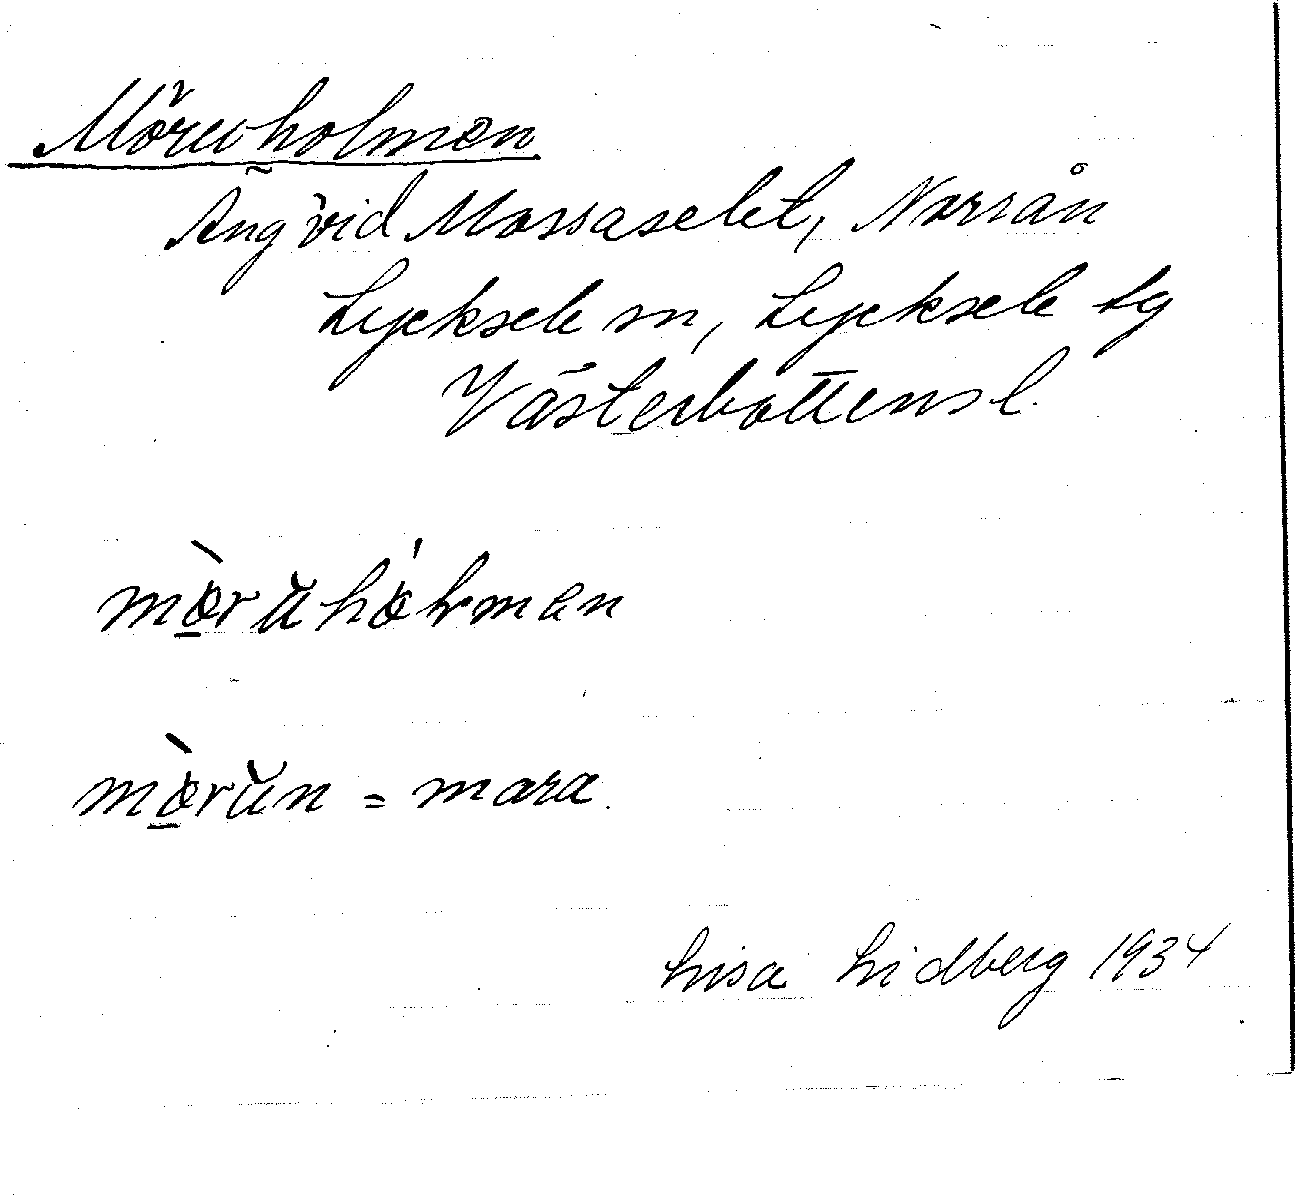 Möruholmen
Äng vid Mossaselet, Norrån
Lycksele sn, Lycksele tg
Västerbottens l.
mö̀ruhólmen
mö̀run = mara.
Lisa Lidberg 1934